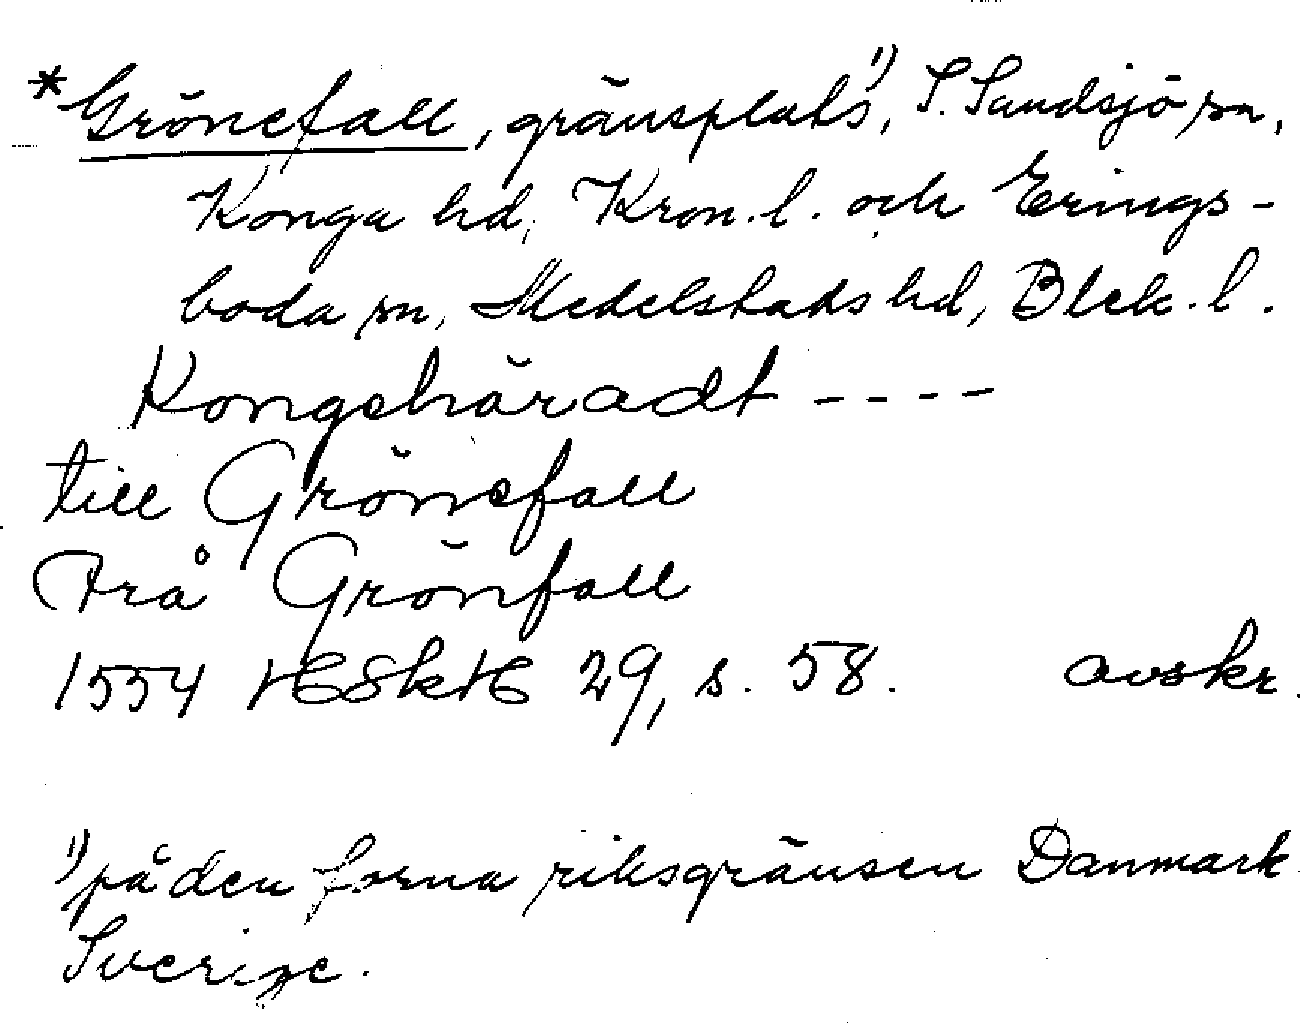 *Grönefall, gränsplats¹⁾, S. Sandsjö sn,
Konga hd, Kron. l. och Erings-
boda sn, Medelstads hd, Blek. l.
Kongehäradt ----
till Grönefall
Frå Grönfall
1554 HSkH 29, s. 58. avskr.
¹⁾på den forna riksgränsen Danmark
Sverige.